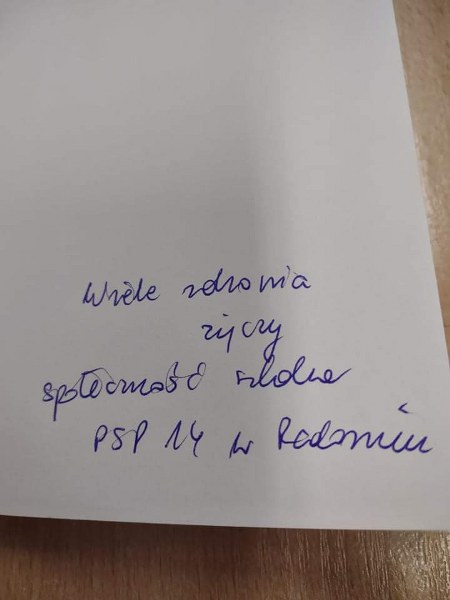 Wiele zdrowia
życzy
społeczność szkolna
PSP 14 w Radomiu